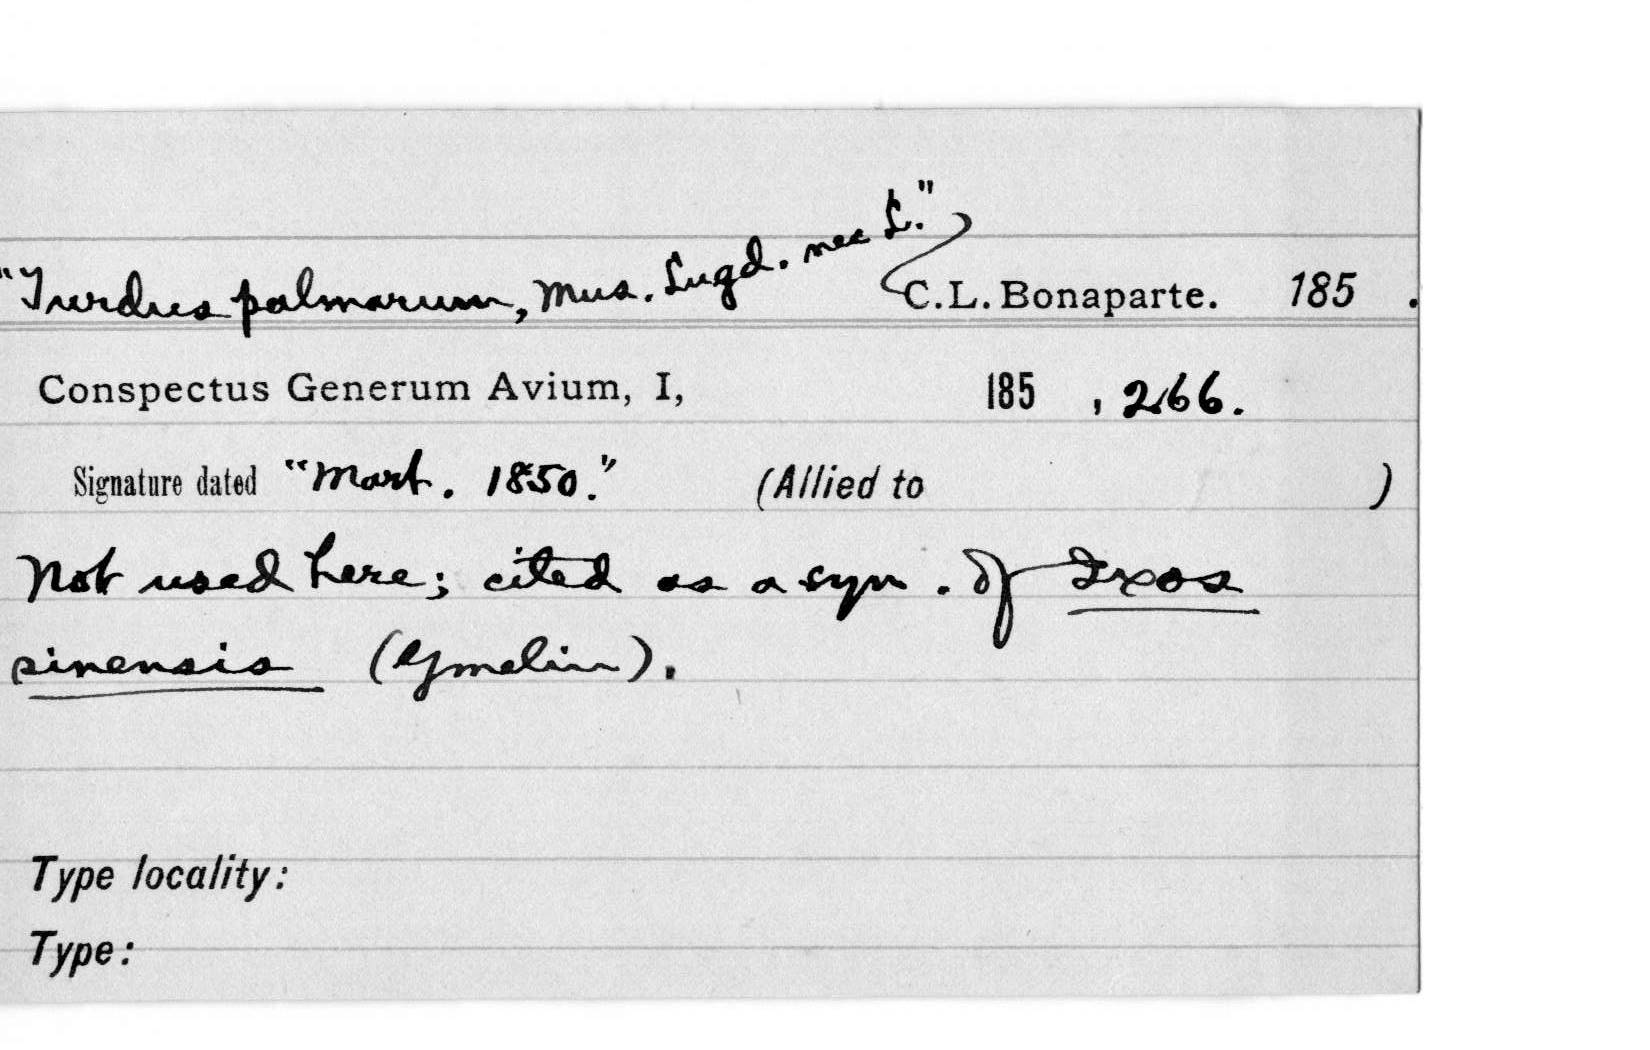 "Turdus palmarum, Mus. Lugd. nec L." C.L. Bonaparte. 185 .
Conspectus Generum Avium, I, 185 , 266.
Signature dated "Mart. 1850." (Allied to )
Not used here; cited as a syn. of Ixos
sinensis (Gmelin).
Type locality:
Type: